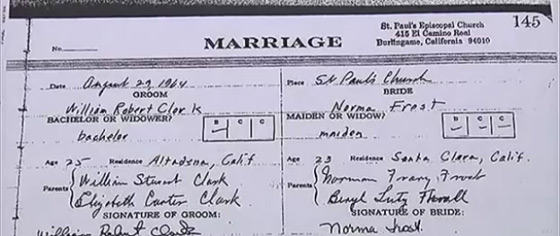 145
St. Paul's Episcopal Church
415 El Camino Real
Burlingame, California 94010
No.
MARRIAGE
Date August 29, 1964
Place St Paul's Church
GROOM
BRIDE
William Robert Clark
Norma Frost
BACHELOR OR WIDOWER?
MAIDEN OR WIDOW?
B C C
B C C
bachelor
maiden
Age 25 Residence Altadena, Calif
Age 23 Residence Santa Clara, Calif.
Parents
William Stewart Clark
Elizabeth Carter Clark
Parents
Norman Frost
Beryl
SIGNATURE OF GROOM:
SIGNATURE OF BRIDE:
William Robert Clark
Norma Frost